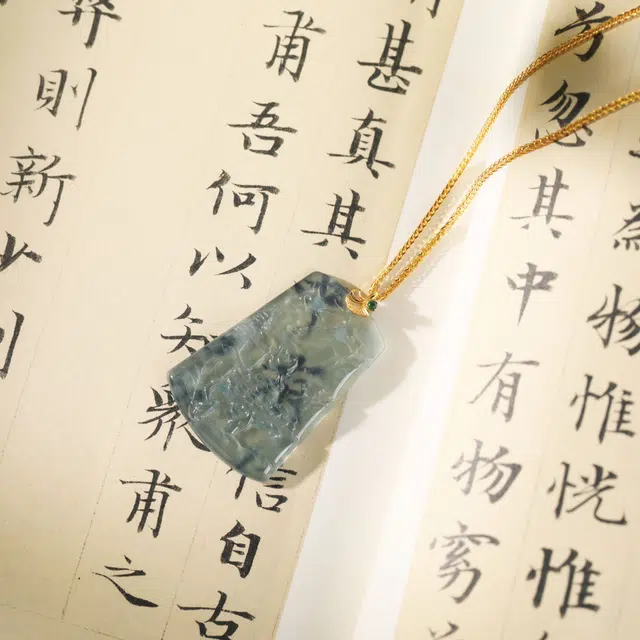 為物惟恍惟
兮忽其中有物窈
甚真其信自古
甫吾何以知衆甫之
則新少則